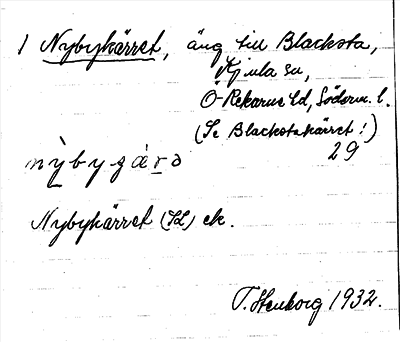 1 Nybykärret, äng till Blacksta,
Kjula sn,
Ö-Rekarne hd, Söderm. l.
(Se Blackstakärret!)
29
nỳbygáro
Nybykärret (JL) ek.
T. Stenborg 1932.